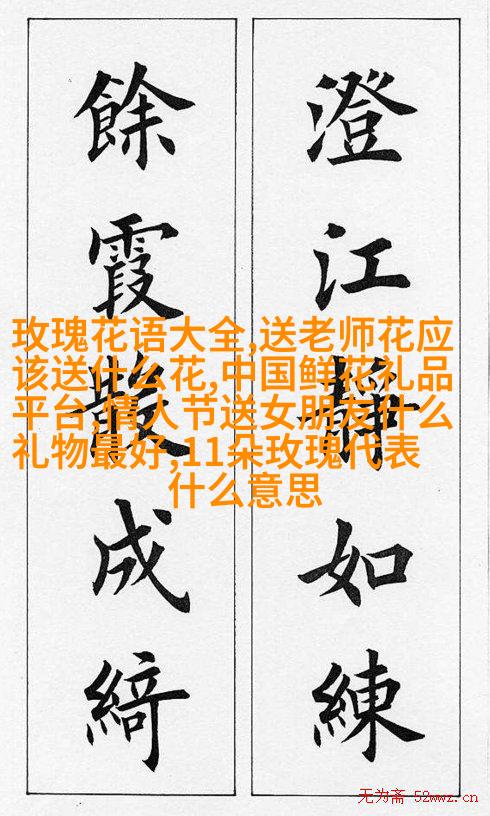 澄江靜如練
餘霞散成綺
玫瑰花语大全,送老师花应
该送什么花,中国鲜花礼品
平台,情人节送女朋友什么
礼物最好,11朵玫瑰代表
什么意思
无为斋 52wwz.cn